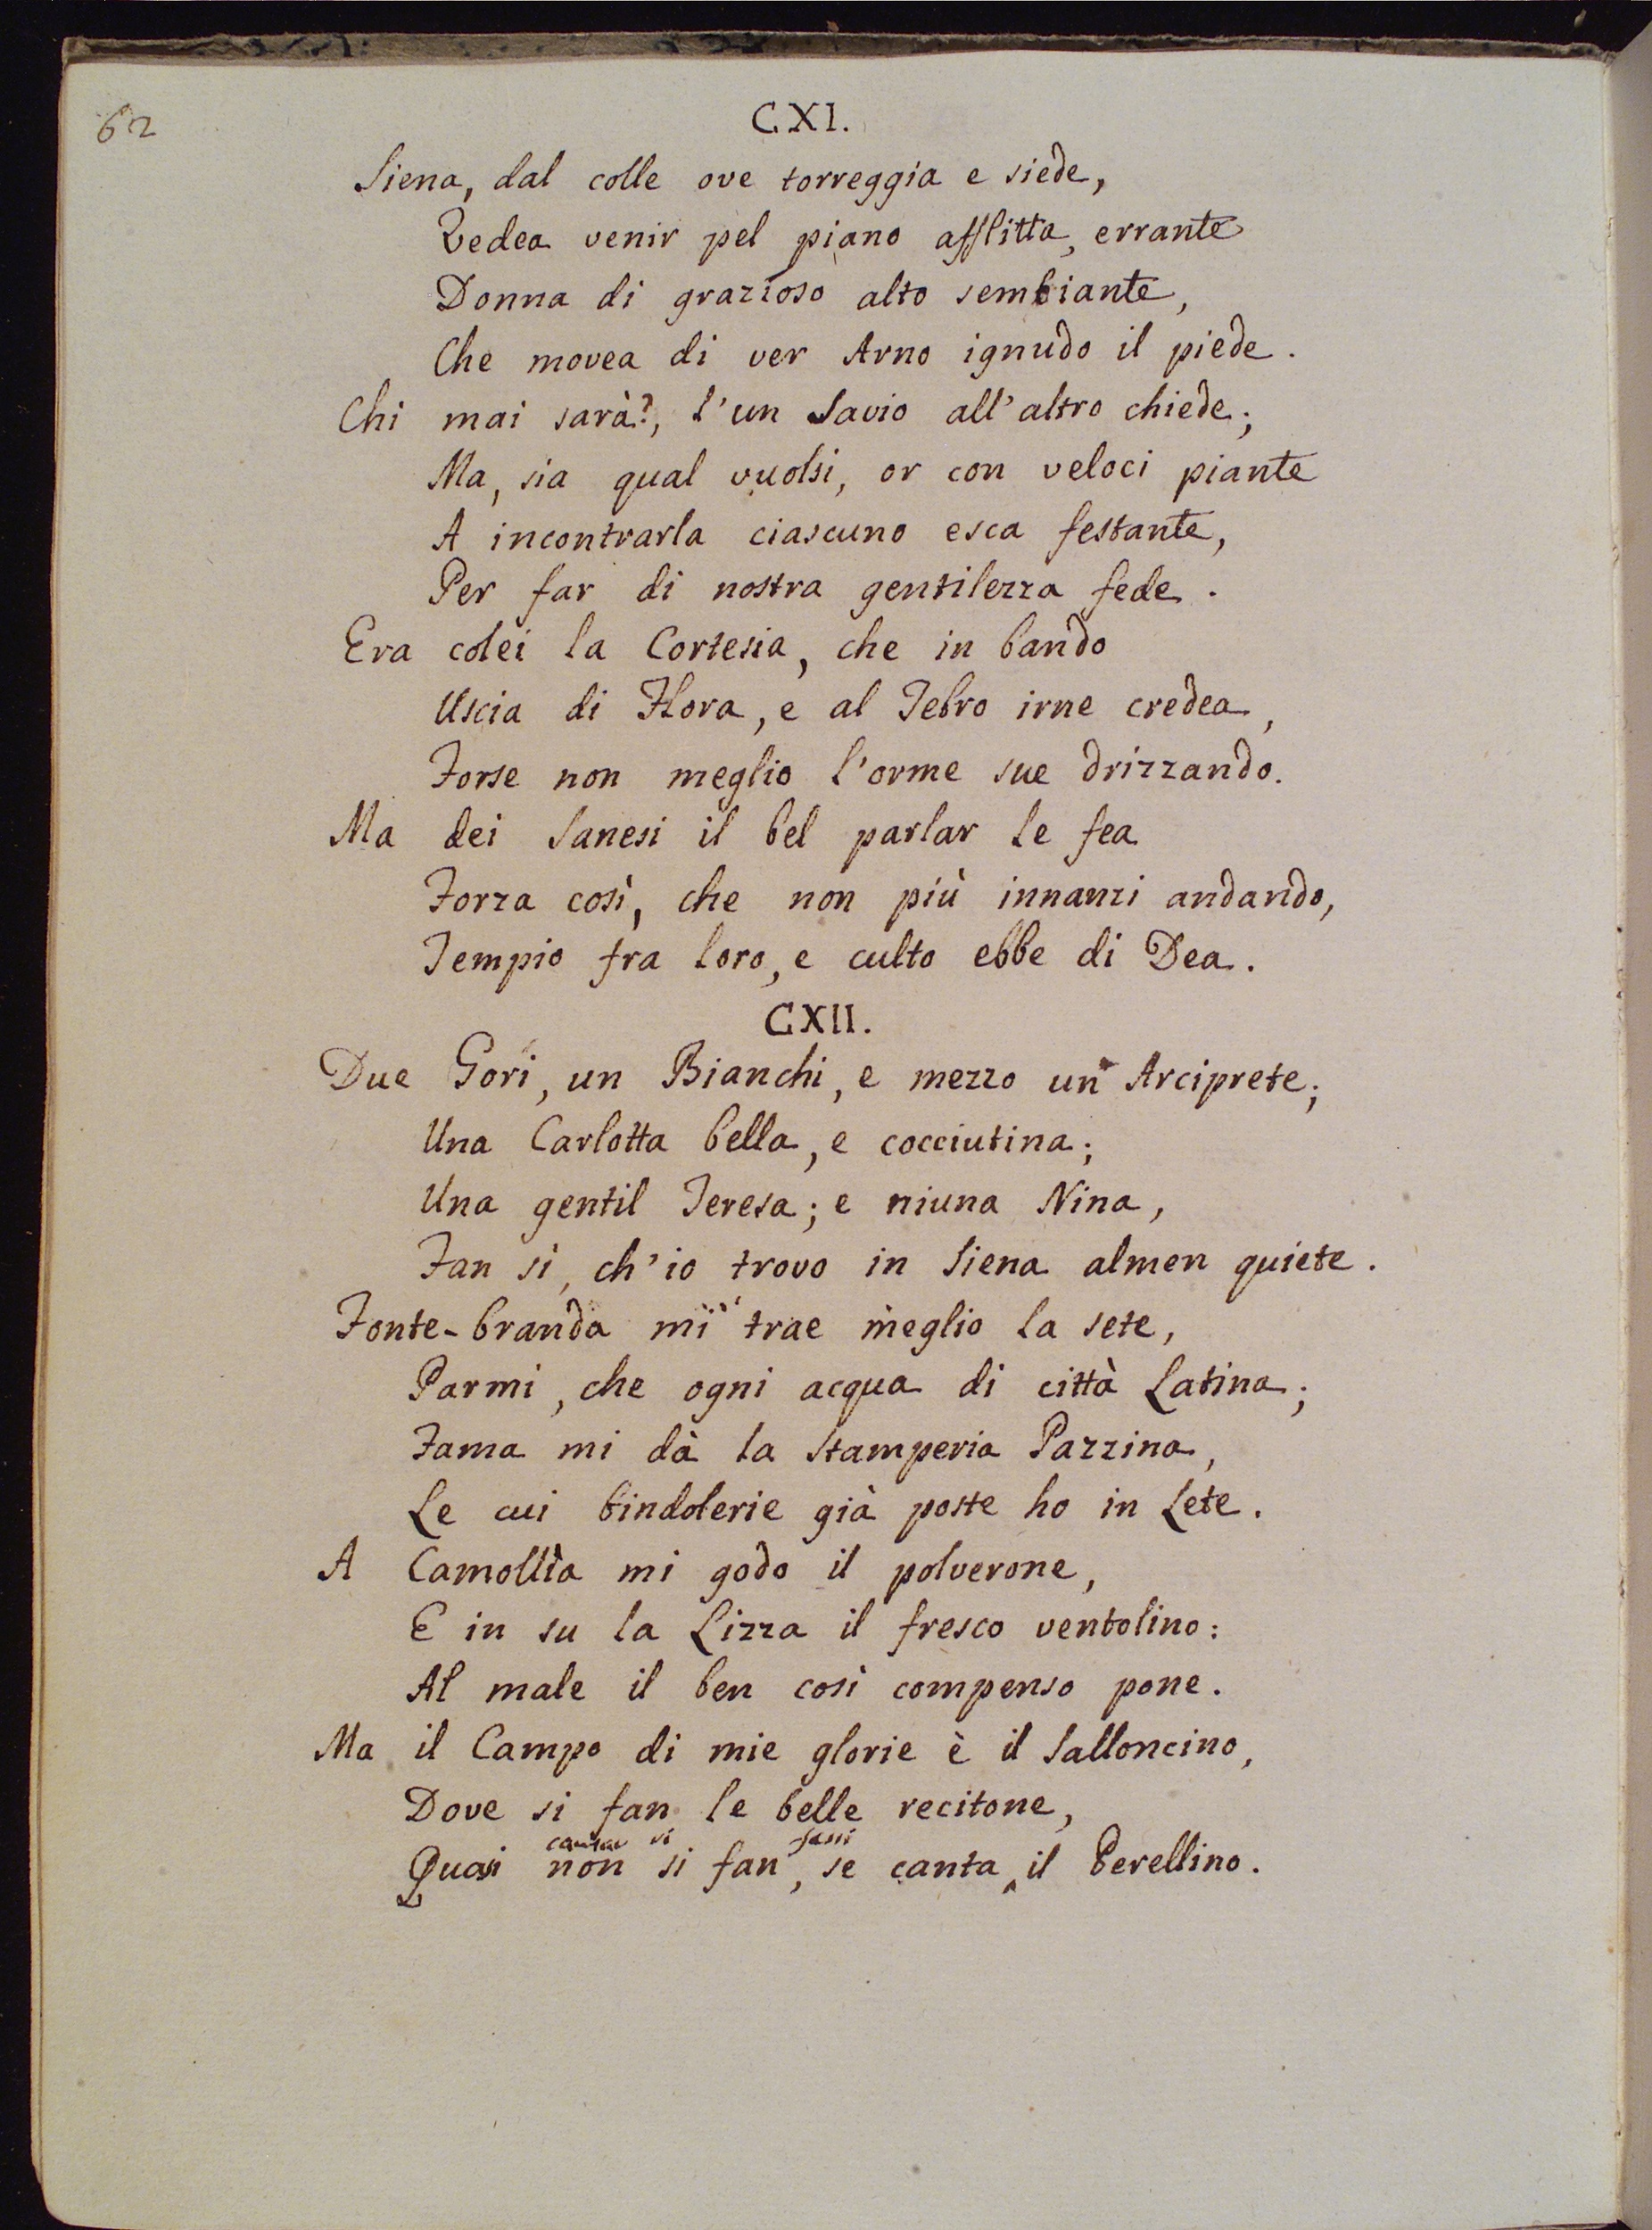 62
CXI.
Siena, dal colle ove torreggia e siede,
Vedea venir pel piano afflitta, errante
Donna di grazioso alto sembiante,
Che movea di ver Arno ignudo il piede.
Chi mai sarà?, l'un Savio all'altro chiede;
Ma, sia qual vuolsi, or con veloci piante
A incontrarla ciascuno esca festante,
Per far di nostra gentilezza fede.
Era colei la Cortesia, che in bando
Uscia di Flora, e al Tebro irne credea,
Forse non meglio l'orme sue drizzando.
Ma dei Sanesi il bel parlar le fea
Forza così, che non più innanzi andando,
Tempio fra loro, e culto ebbe di Dea.
CXII.
Due Gori, un Bianchi, e mezzo un Arciprete;
Una Carlotta bella, e cocciutina;
Una gentil Teresa; e niuna Nina,
Fan sì, ch'io trovo in Siena almen quiete.
Fonte-branda mi trae meglio la sete,
Parmi, che ogni acqua di città Latina;
Fama mi dà la Stamperia Pazzina,
Le cui bindolerie già poste ho in Lete.
A Camollìa mi godo il polverone,
E in su la Lizza il fresco ventolino:
Al male il ben così compenso pone.
Ma il Campo di mie glorie è il Salloncino,
Dove si fan le belle recitone,
cantar si fassi
Quasi non si fan, se canta il Perellino.